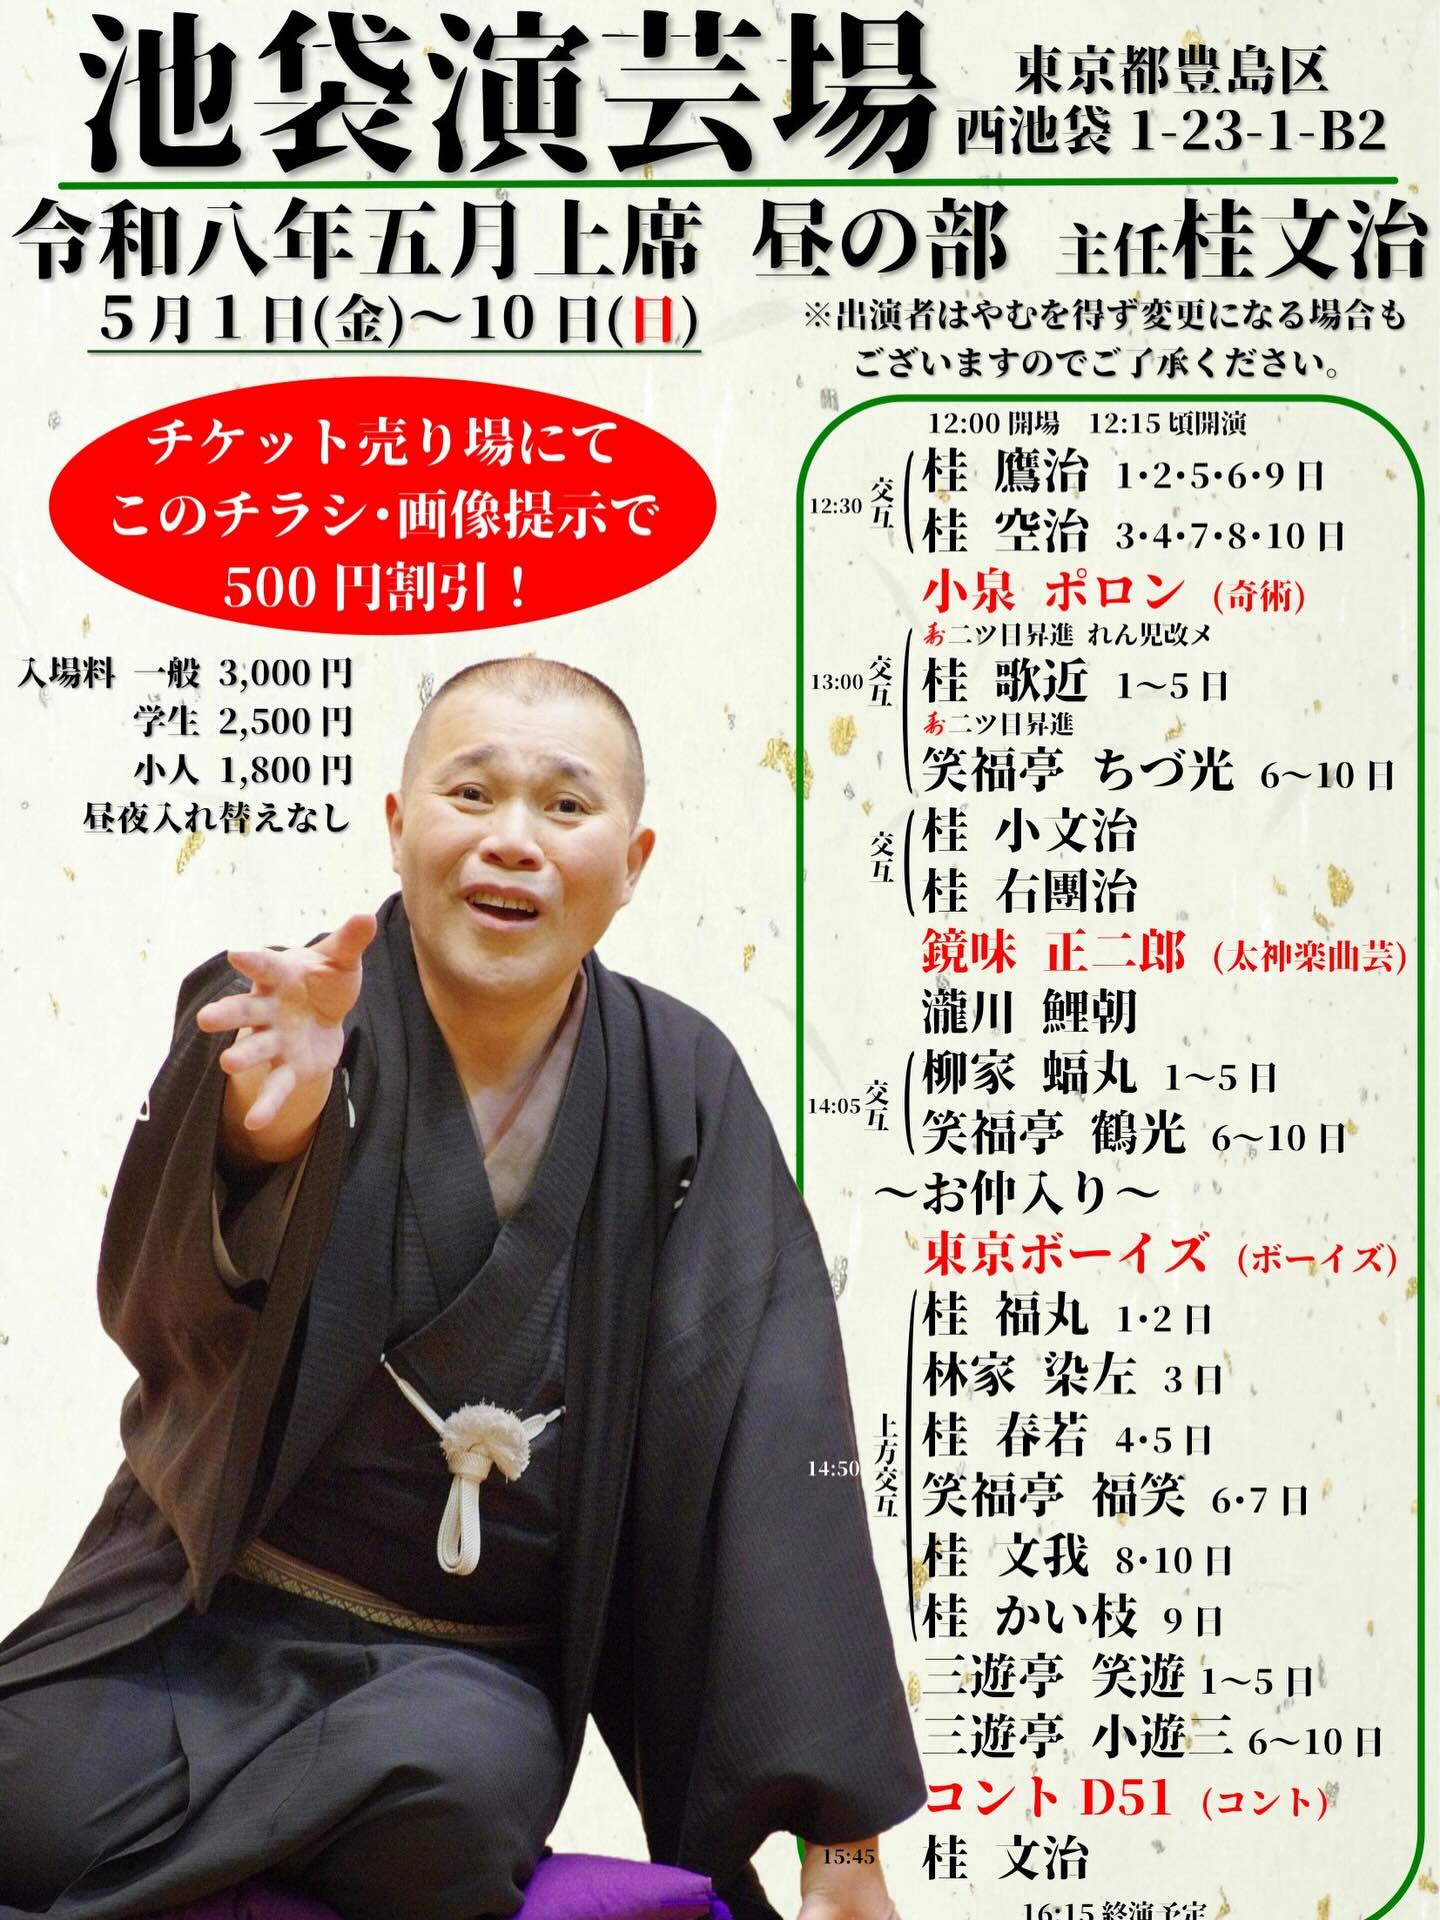 池袋演芸場
東京都豊島区
西池袋 1-23-1-B2
令和八年五月上席 昼の部 主任桂文治
5月1日(金)～10日(日)
※出演者はやむを得ず変更になる場合も
ございますのでご了承ください。
チケット売り場にて
このチラシ・画像提示で
500円割引！
入場料 一般 3,000円
学生 2,500円
小人 1,800円
昼夜入れ替えなし
12:00開場 12:15頃開演
12:30 交互
桂 鷹治 1・2・5・6・9日
桂 空治 3・4・7・8・10日
小泉 ポロン (奇術)
13:00 交互
寿二ツ目昇進 れん児改メ
桂 歌近 1～5日
寿二ツ目昇進
笑福亭 ちづ光 6～10日
交互
桂 小文治
桂 右團治
鏡味 正二郎 (太神楽曲芸)
瀧川 鯉朝
14:05 交互
柳家 蝠丸 1～5日
笑福亭 鶴光 6～10日
～お仲入り～
東京ボーイズ (ボーイズ)
14:50 上方交互
桂 福丸 1・2日
林家 染左 3日
桂 春若 4・5日
笑福亭 福笑 6・7日
桂 文我 8・10日
桂 かい枝 9日
三遊亭 笑遊 1～5日
三遊亭 小遊三 6～10日
コントD51 (コント)
15:45 桂 文治
16:15終演予定